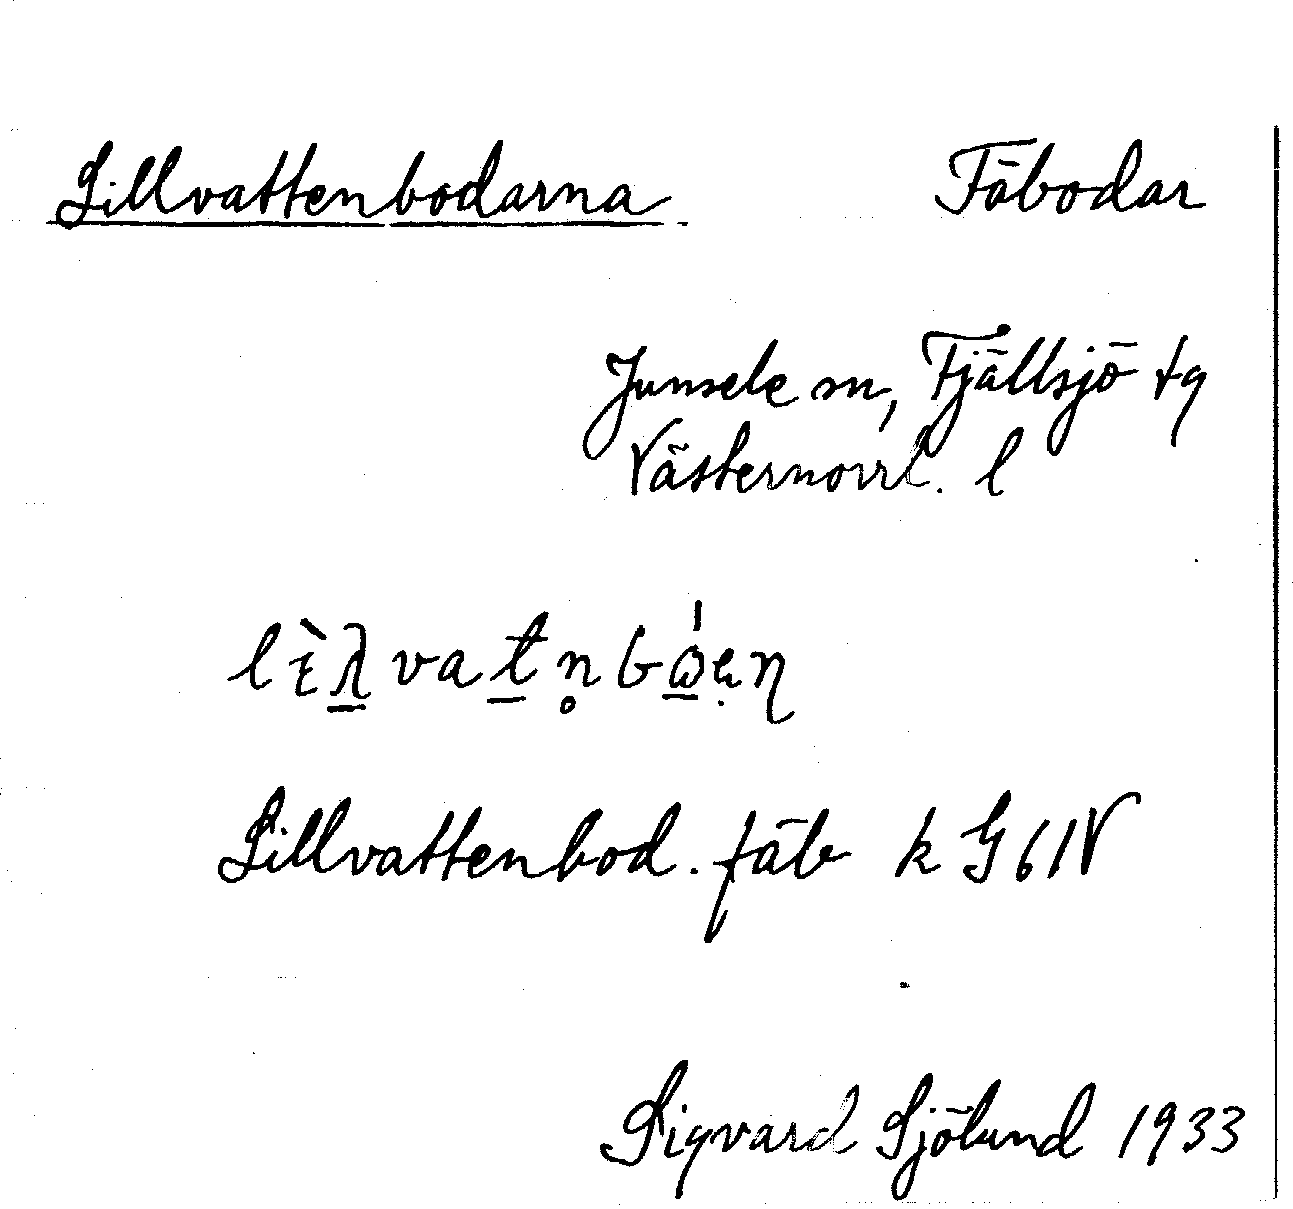 Lillvattenbodarna Fäbodar
Junsele sn, Fjällsjö tg
Västernorrl. l
Lillvattenbod. fäb k G 61 V
Sigvard Sjölund 1933